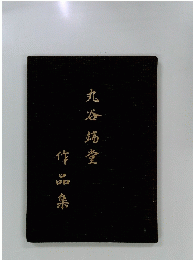 丸谷端堂
作品集